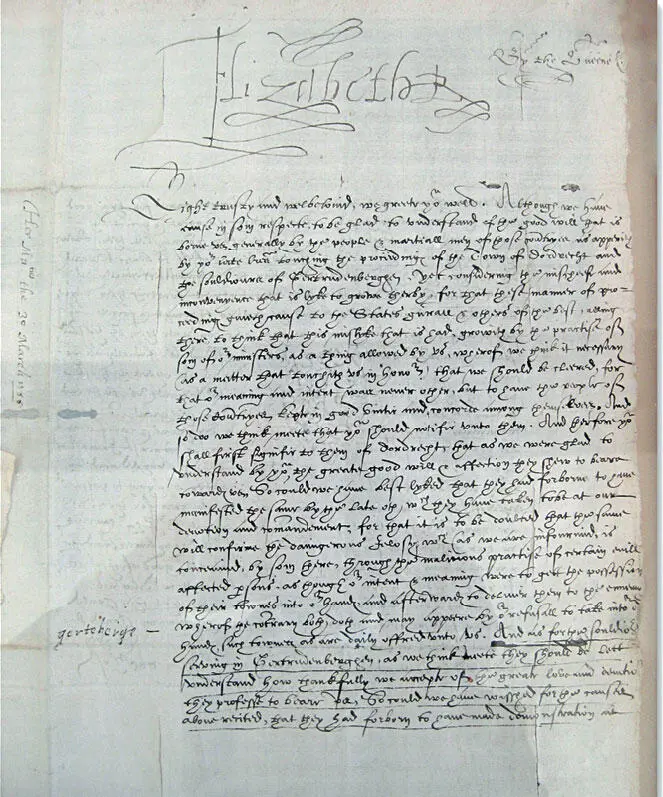 Elizabeth R
By the Queene
Right trusty and welbelovid, we greete yow well. Although we have
cause in som respecte, to be glad to understand of the good will that is
borne us, generally by the people & martiall men of those countries as apperith
by yor late touching the proceeding of the Town of Dordrecht and
the souldiours of Gertrudenberghen, Yet considering the mischeif and
inconvenience that is lyke to growe therby, for that thes manner of pro-
ceeding giveth cause to the States generall & others of the best, being
there, to think that this mislyke that is had, growith by the practise of
som of or ministers, as a thing allowed by us, wherof we think it necessary
(as a matter that toucheth us in honor) that we should be cleered, for
that or meaning and intent was never other, but to have the people of
those Countryes kept in good unitie and concorde among themselves. And
so do we think meete that yow should notifie unto them. And therfore yow
shall first signifie to them of Dordrecht, that as we were glad to
understand by yow, the greate good will & affection they shew to beare
towards us, So could we have best lyked that they had forborne to have
manifested the same by the late oth, wch they have taken to be at our
devotion and comandement, for that it is to be doubted that the same
will confirme the daungerous Jelosy wch as we are infourmid, is
conceived, by som there, through the malicious practise of certain evill
affected persons. as though or intent & meaning were to get the possession
of their townes into or handes and afterwards to deliver them to the enemie
wherof the contrary both doth and may appeere by or refusall to take into or
handes, such townes as are daily offred unto us. And as for the souldiors
gertebergh —
serving in Gertrudenberghen, as we think meete they should be lett
understand how thankfully we accepte of the greate love and devotion
they professe to beare us, So could we have wisshed for the causes
above recited, that they had forborn to have made demonstration as
the 30 March